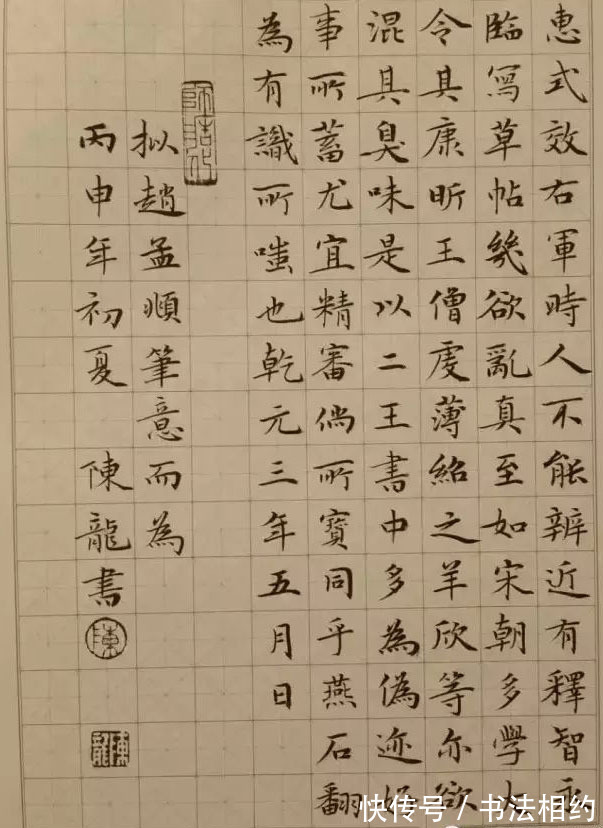 惠式效右軍時人不能辨近有釋智永
臨寫草帖幾欲亂真至如宋朝多學大
令其康昕王僧虔薄紹之羊欣等亦欲
混其臭味是以二王書中多為偽迹好
事所蓄尤宜精審倘所寶同乎燕石翻
為有識所嗤也乾元三年五月日
拟趙孟順筆意而為
丙申年初夏 陳龍書
陳
陳龍
快传号 / 书法相约